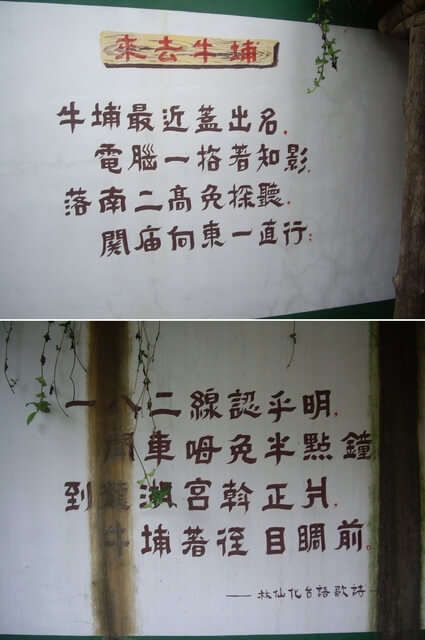 來去牛埔
牛埔最近蓋出名.
電腦一著知影.
落南二高免探聽.
關庙向東一直行;
一八二線認乎明.
開車呣免半點鐘.
到龍湖宮斡正爿.
牛埔著目睭前。
—— 林仙化台語歌詩 —